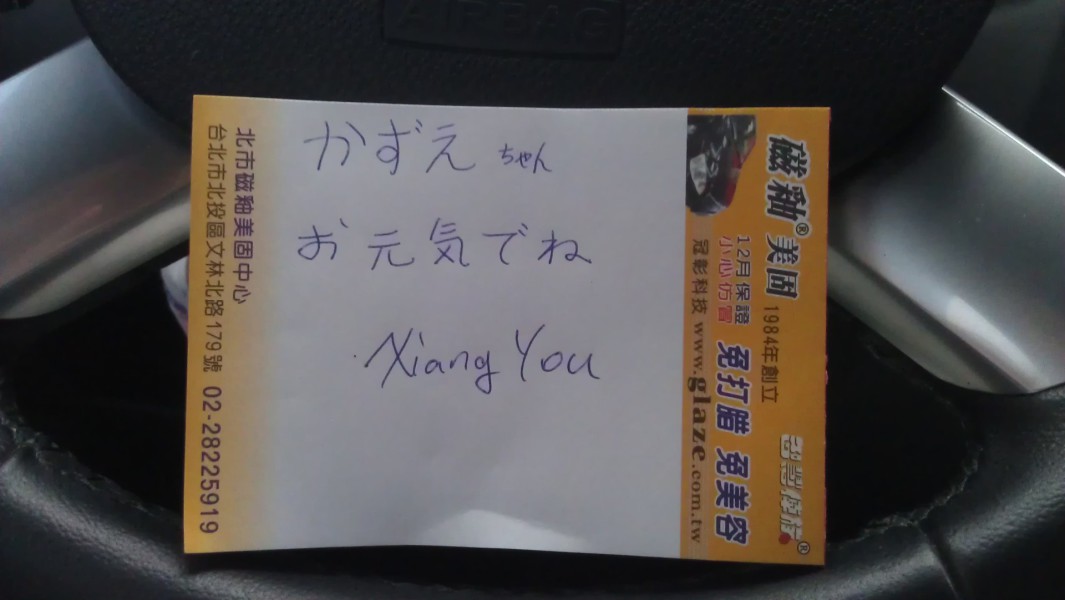 AIRBAG
かずえ ちゃん
お元気でね
Xiang You
磁釉® 美固 1984年創立
12月保證 免打腊 免美容
小心仿冒
冠彰科技 www.glaze.com.tw
北市磁釉美固中心
台北市北投區文林北路179號 02-28225919